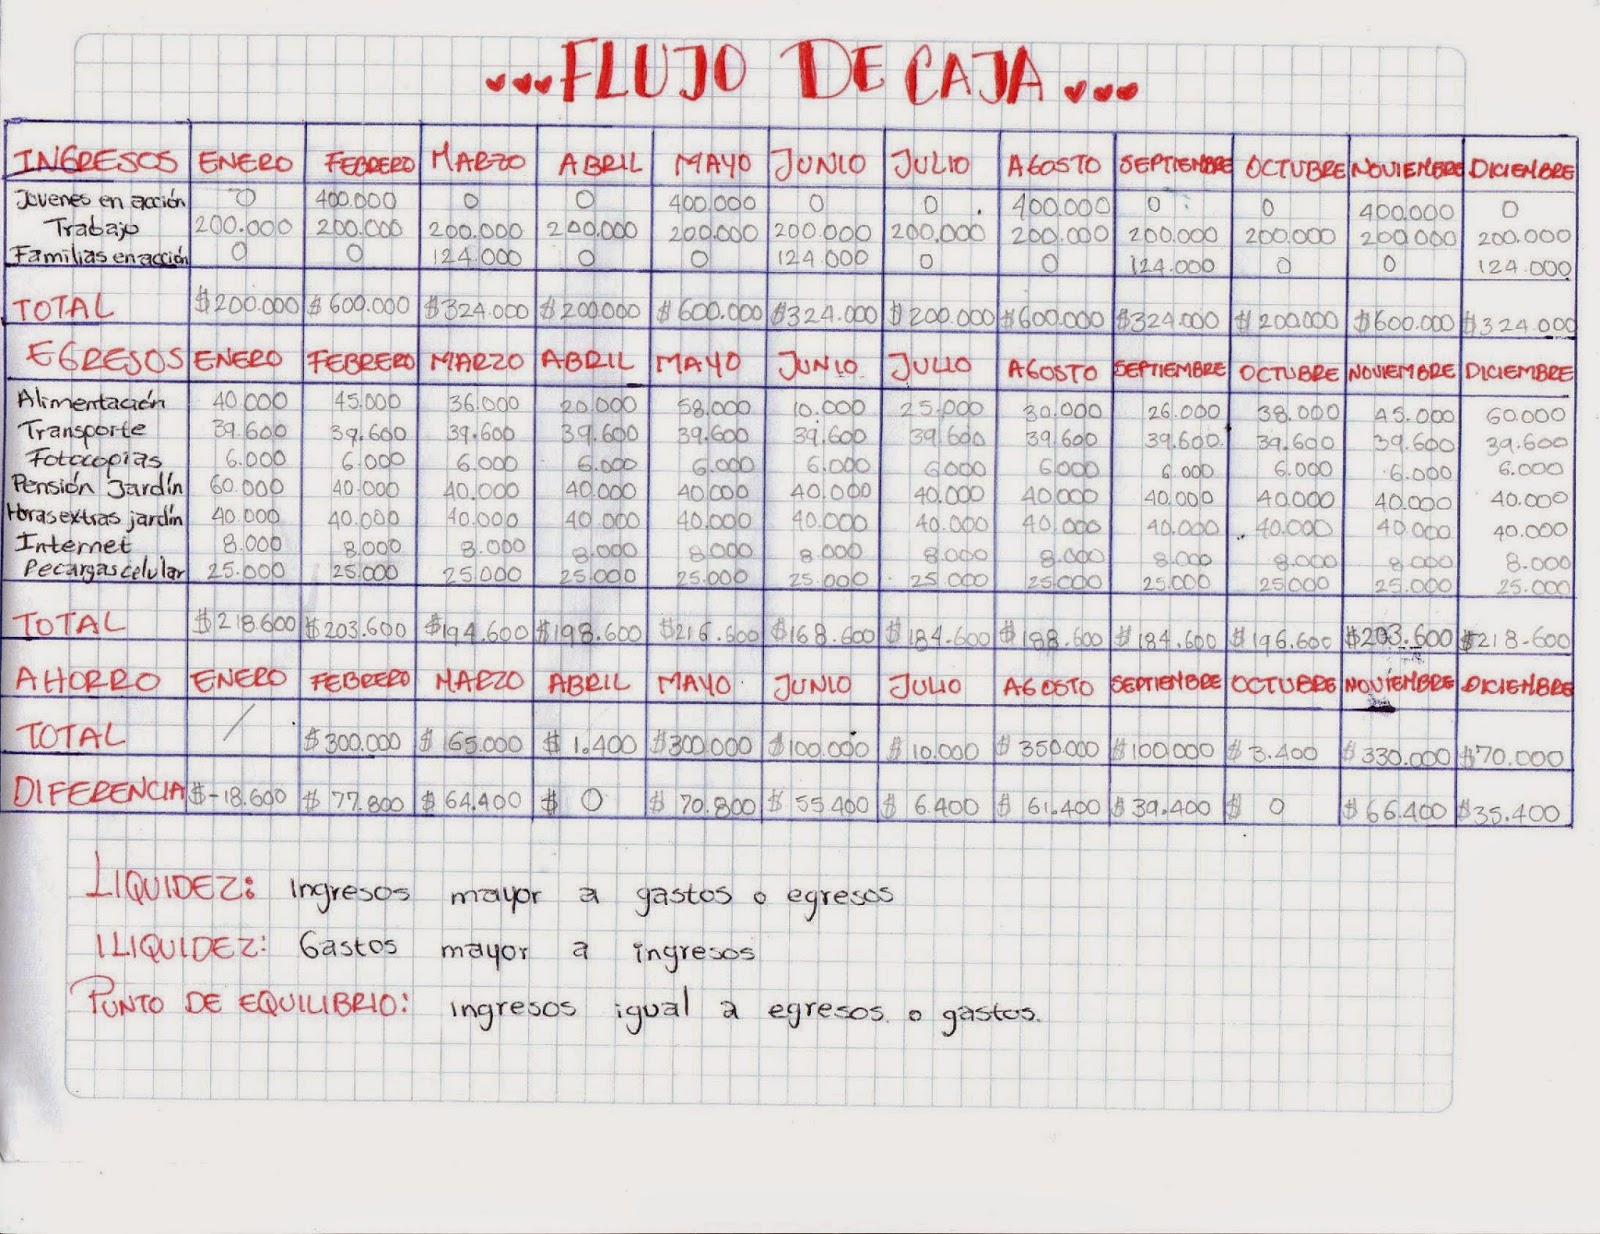 FLUJO DE CAJA
INGRESOS ENERO FEBRERO MARZO ABRIL MAYO JUNIO JULIO AGOSTO SEPTIEMBRE OCTUBRE NOVIEMBRE DICIEMBRE
Jovenes en acción 0 400.000 0 0 400.000 0 0 400.000 0 0 400.000 0
Trabajo 200.000 200.000 200.000 200.000 200.000 200.000 200.000 200.000 200.000 200.000 200.000 200.000
Familias en acción 0 0 124.000 0 0 124.000 0 0 124.000 0 0 124.000
TOTAL $200.000 $600.000 $324.000 $200.000 $600.000 $324.000 $200.000 $600.000 $324.000 $200.000 $600.000 $324.000
EGRESOS ENERO FEBRERO MARZO ABRIL MAYO JUNIO JULIO AGOSTO SEPTIEMBRE OCTUBRE NOVIEMBRE DICIEMBRE
Alimentación 40.000 45.000 36.000 20.000 58.000 10.000 25.000 30.000 26.000 38.000 45.000 60.000
Transporte 39.600 39.600 39.600 39.600 39.600 39.600 39.600 39.600 39.600 39.600 39.600 39.600
Fotocopias 6.000 6.000 6.000 6.000 6.000 6.000 6.000 6.000 6.000 6.000 6.000 6.000
Pensión Jardín 60.000 40.000 40.000 40.000 40.000 40.000 40.000 40.000 40.000 40.000 40.000 40.000
Horas extras jardín 40.000 40.000 40.000 40.000 40.000 40.000 40.000 40.000 40.000 40.000 40.000 40.000
Internet 8.000 8.000 8.000 8.000 8.000 8.000 8.000 8.000 8.000 8.000 8.000 8.000
Recargas celular 25.000 25.000 25.000 25.000 25.000 25.000 25.000 25.000 25.000 25.000 25.000 25.000
TOTAL $218.600 $203.600 $194.600 $198.600 $216.600 $168.600 $184.600 $188.600 $184.600 $196.600 $203.600 $218.600
AHORRO ENERO FEBRERO MARZO ABRIL MAYO JUNIO JULIO AGOSTO SEPTIEMBRE OCTUBRE NOVIEMBRE DICIEMBRE
TOTAL / $300.000 $65.000 $1.400 $300.000 $100.000 $10.000 $350.000 $100.000 $3.400 $330.000 $70.000
DIFERENCIA $-18.600 $77.800 $64.400 $0 $70.800 $55.400 $6.400 $61.400 $39.400 $0 $66.400 $35.400
LIQUIDEZ: Ingresos mayor a gastos o egresos
ILIQUIDEZ: Gastos mayor a ingresos
PUNTO DE EQUILIBRIO: ingresos igual a egresos o gastos.